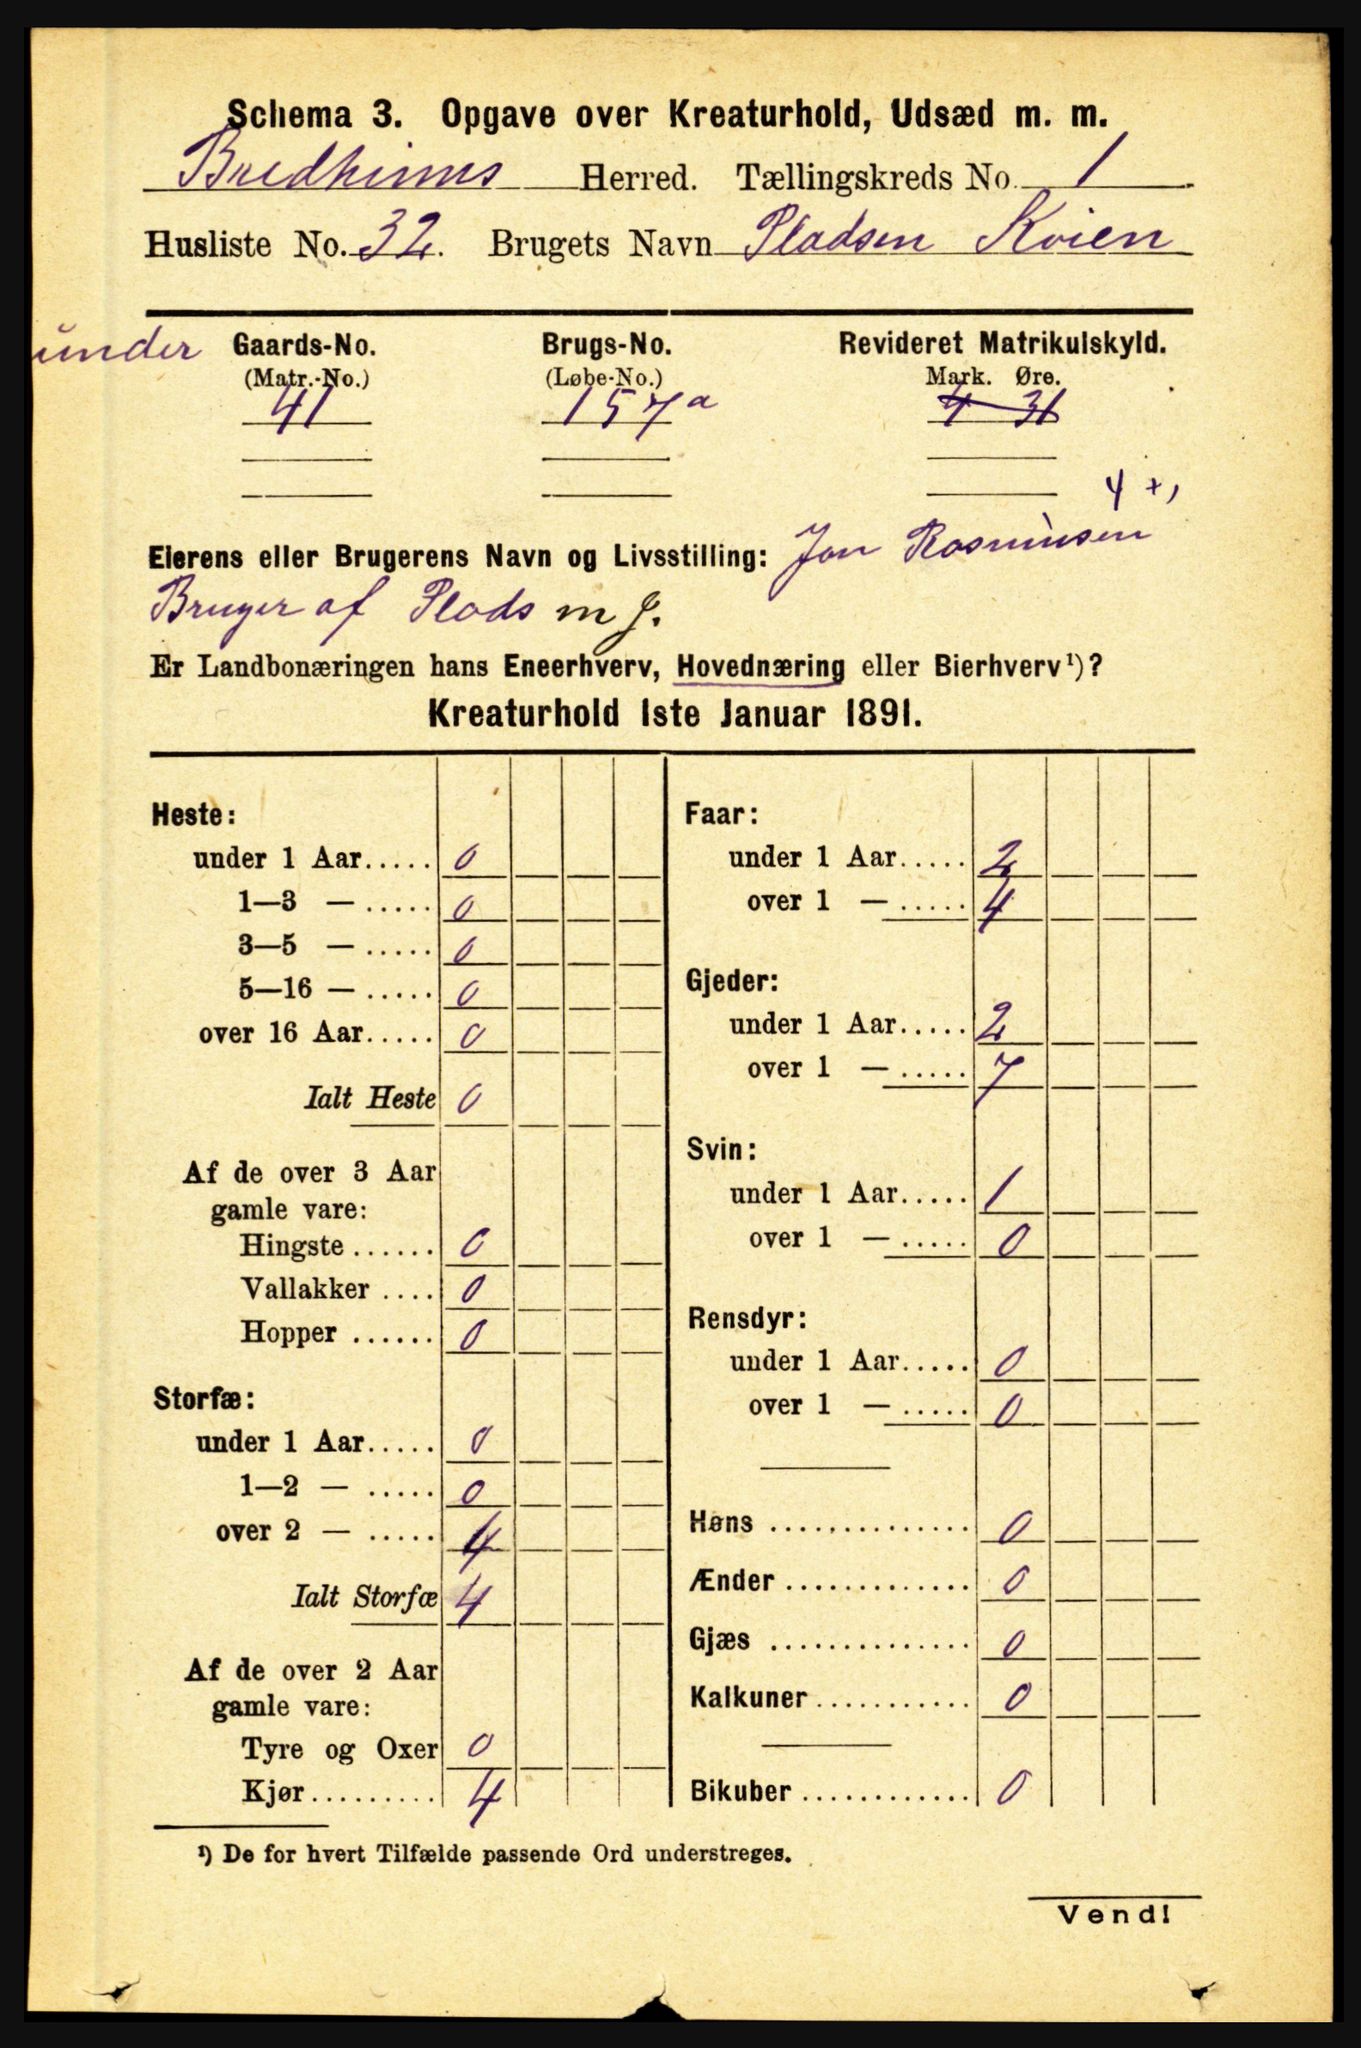 Schema 3. Opgave over Kreaturhold, Udsæd m. m.
Bredheims Herred. Tællingskreds No. 1
Husliste No. 32. Brugets Navn Pladsen Kvien
under Gaards-No. Brugs-No. Revideret Matrikulskyld.
(Matr.-No.) (Løbe-No.) Mark. Øre.
41 157a 4 31
4 +,
Eierens eller Brugerens Navn og Livsstilling: Jon Rasmusen
Bruger af Plads m J.
Er Landbonæringen hans Eneerhverv, Hovednæring eller Bierhverv¹)?
Kreaturhold 1ste Januar 1891.
Heste:
under 1 Aar..... 0
1—3 — ..... 0
3—5 — ..... 0
5—16 — ..... 0
over 16 Aar..... 0
Ialt Heste 0
Af de over 3 Aar
gamle vare:
Hingste ...... 0
Vallakker .... 0
Hopper ...... 0
Storfæ:
under 1 Aar..... 0
1—2 — ..... 0
over 2 — ..... 4
Ialt Storfæ 4
Af de over 2 Aar
gamle vare:
Tyre og Oxer 0
Kjør......... 4
Faar:
under 1 Aar..... 2
over 1 — ..... 4
Gjeder:
under 1 Aar..... 2
over 1 — ..... 7
Svin:
under 1 Aar..... 1
over 1 — ..... 0
Rensdyr:
under 1 Aar..... 0
over 1 — ..... 0
Høns .............. 0
Ænder ............. 0
Gjæs .............. 0
Kalkuner........... 0
Bikuber ............ 0
¹) De for hvert Tilfælde passende Ord understreges.
Vend!